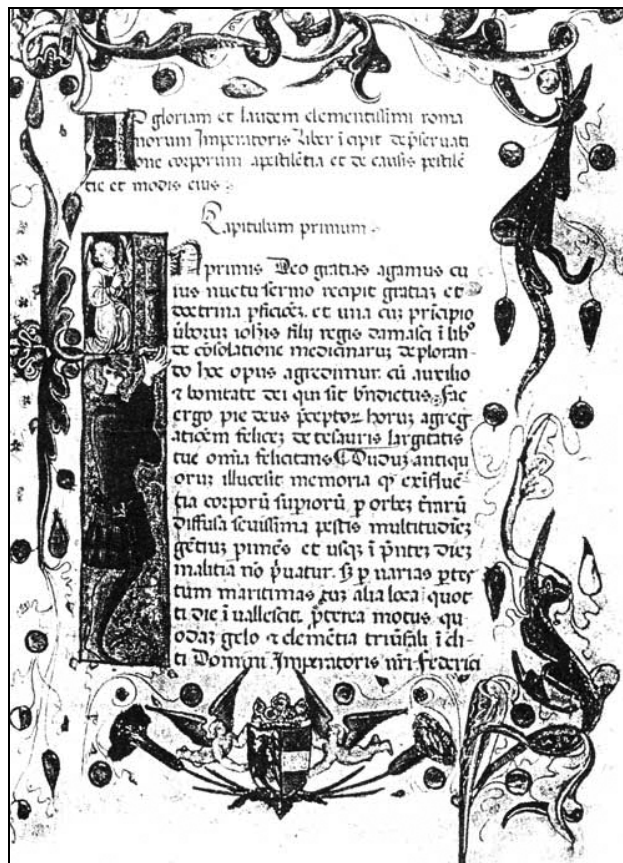 AD gloriam et laudem clementissimi roma
norum Imperatoris Liber ĩ cipit de p̃servati
one corporum apestilẽtia et de causis pestilẽ
tie et modis eius :
Capitulum primum .
In primis Deo gratias agamus cu
ius nuctu sermo recipit gratiaz et
doctrina pficiẽz. et una cuz pricipio
ũboruz iohis filij regis damasci ĩ libº
de cõsolatione medicinaruz deploran
do hoc opus agredimur. cũ auxilio
⁊ bonitate dei qui sit bñdictus. Fac
ergo pie deus p̃ceptor horuz agreg
aticẽm felicez de tesauris largitatis
tue om̃ia felicitans Duduz antiqu
oruz illucesit memoria qz exĩfluẽ
tia corporũ supiorũ p orbez
diffusa sevissima pestis multitudiẽz
gẽtiuz pimẽs et usqz ĩ p̃ntez diez
malitia nõ p̃vatur. sz p varias ptes
tum maritimas tuz alia loca quot
ti die ĩ vallescit. p̃terea motus qu
odaz zelo ⁊ clemẽtia triũfali ĩ cli
ti Domini Imperatoris nr̃i Federici